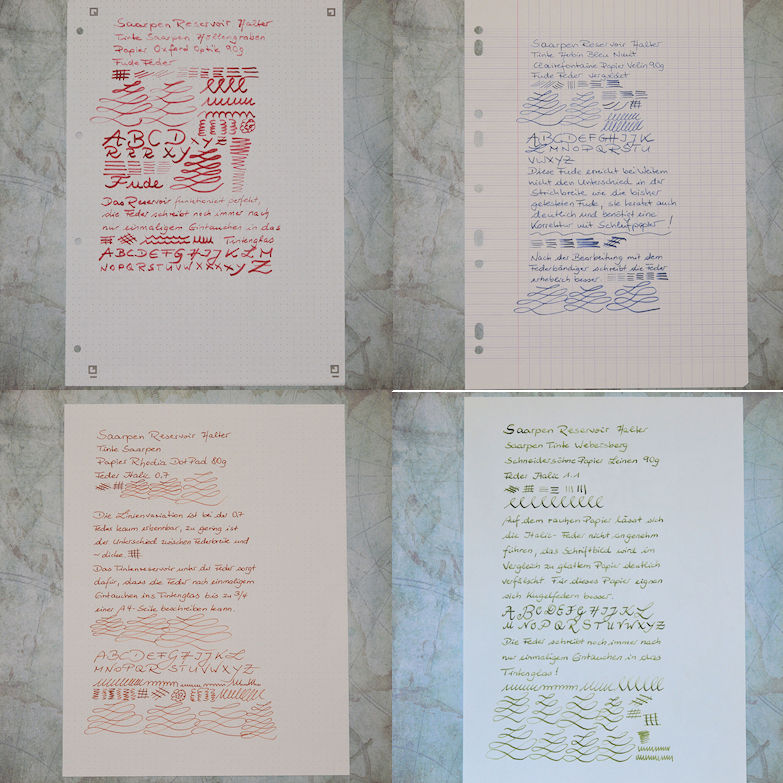 Saarpen Reservoir Halter
Tinte Saarpen Höllengraben
Papier Oxford Optik 90g
Fude Feder
A B C D X Y Z
R R R X Y
Fude
Das Reservoir funktioniert perfekt,
die Feder schreibt noch immer nach
nur einmaligem Eintauchen in das
Tintenglas
A B C D E F G H I J K L M
N O P Q R S T U V W X X X X Y Z
Saarpen Reservoir Halter
Tinte Herbin Bleu Nuit
Clairefontaine Papier Velin 90g
Fude Feder vergoldet
A B C D E F G H I J K
L M N O P Q R S T U
V W X Y Z
Diese Fude erreicht bei Weitem
nicht den Unterschied in der
Strichbreite wie die bisher
getesteten Fude, sie kratzt auch
deutlich und benötigt eine
Korrektur mit Schleifpapier!
Nach der Bearbeitung mit dem
Federbändiger schreibt die Feder
erheblich besser.
Saarpen Reservoir Halter
Tinte Saarpen
Papier Rhodia DotPad 80g
Feder Italic 0.7
Die Linienvariation ist bei der 0.7
Feder kaum erkennbar, zu gering ist
der Unterschied zwischen Federbreite und
- dicke.
Das Tintenreservoir unter der Feder sorgt
dafür, dass die Feder nach einmaligem
Eintauchen ins Tintenglas bis zu 3/4
einer A4-Seite beschreiben kann.
A B C D E F G H I J K L
M N O P Q R S T U V W X Y Z
Saarpen Reservoir Halter
Saarpen Tinte Webersberg
Schneidersöhne Papier Leinen 90g
Feder Italic 1.1
Auf dem rauhen Papier lässt sich
die Italic-Feder nicht angenehm
führen, das Schriftbild wird im
Vergleich zu glattem Papier deutlich
verfälscht. Für dieses Papier eignen
sich Kugelfedern besser.
A B C D E F G H I J K L
M N O P Q R S T U V W X Y Z
Die Feder schreibt noch immer nach
nur einmaligem Eintauchen in das
Tintenglas!